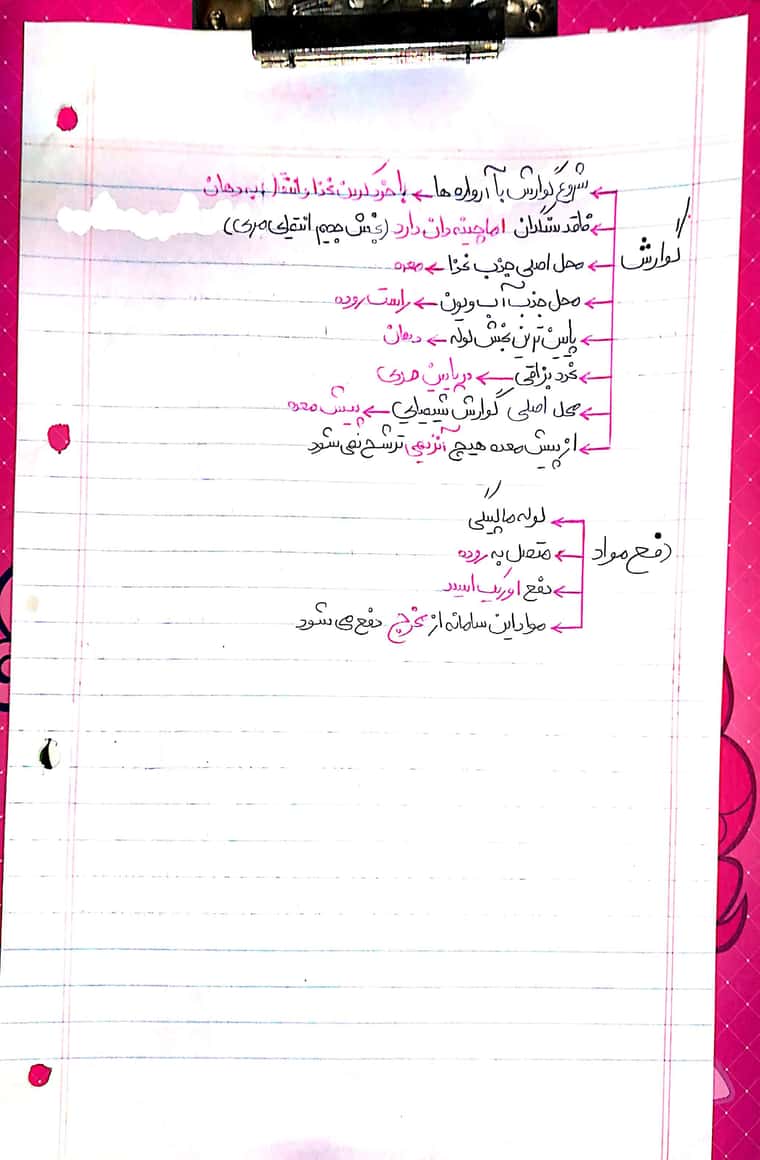 گوارش
شروع گوارش با آرواره ها ← با خرد کردن غذا و انتقال به دهان
فاقد سنگدان اما چینه دان دارد (بخش حجیم انتهایی مری)
محل اصلی جذب غذا ← معده
محل جذب آب و یون ← راست روده
پایین ترین بخش لوله ← دهان
غدد بزاقی ← در پایین مری
محل اصلی گوارش شیمیایی ← پیش معده
از پیش معده هیچ آنزیمی ترشح نمی شود
دفع مواد
لوله مالپیگی
متصل به روده
دفع اوریک اسید
مواد این سامانه از مخرج دفع می شود